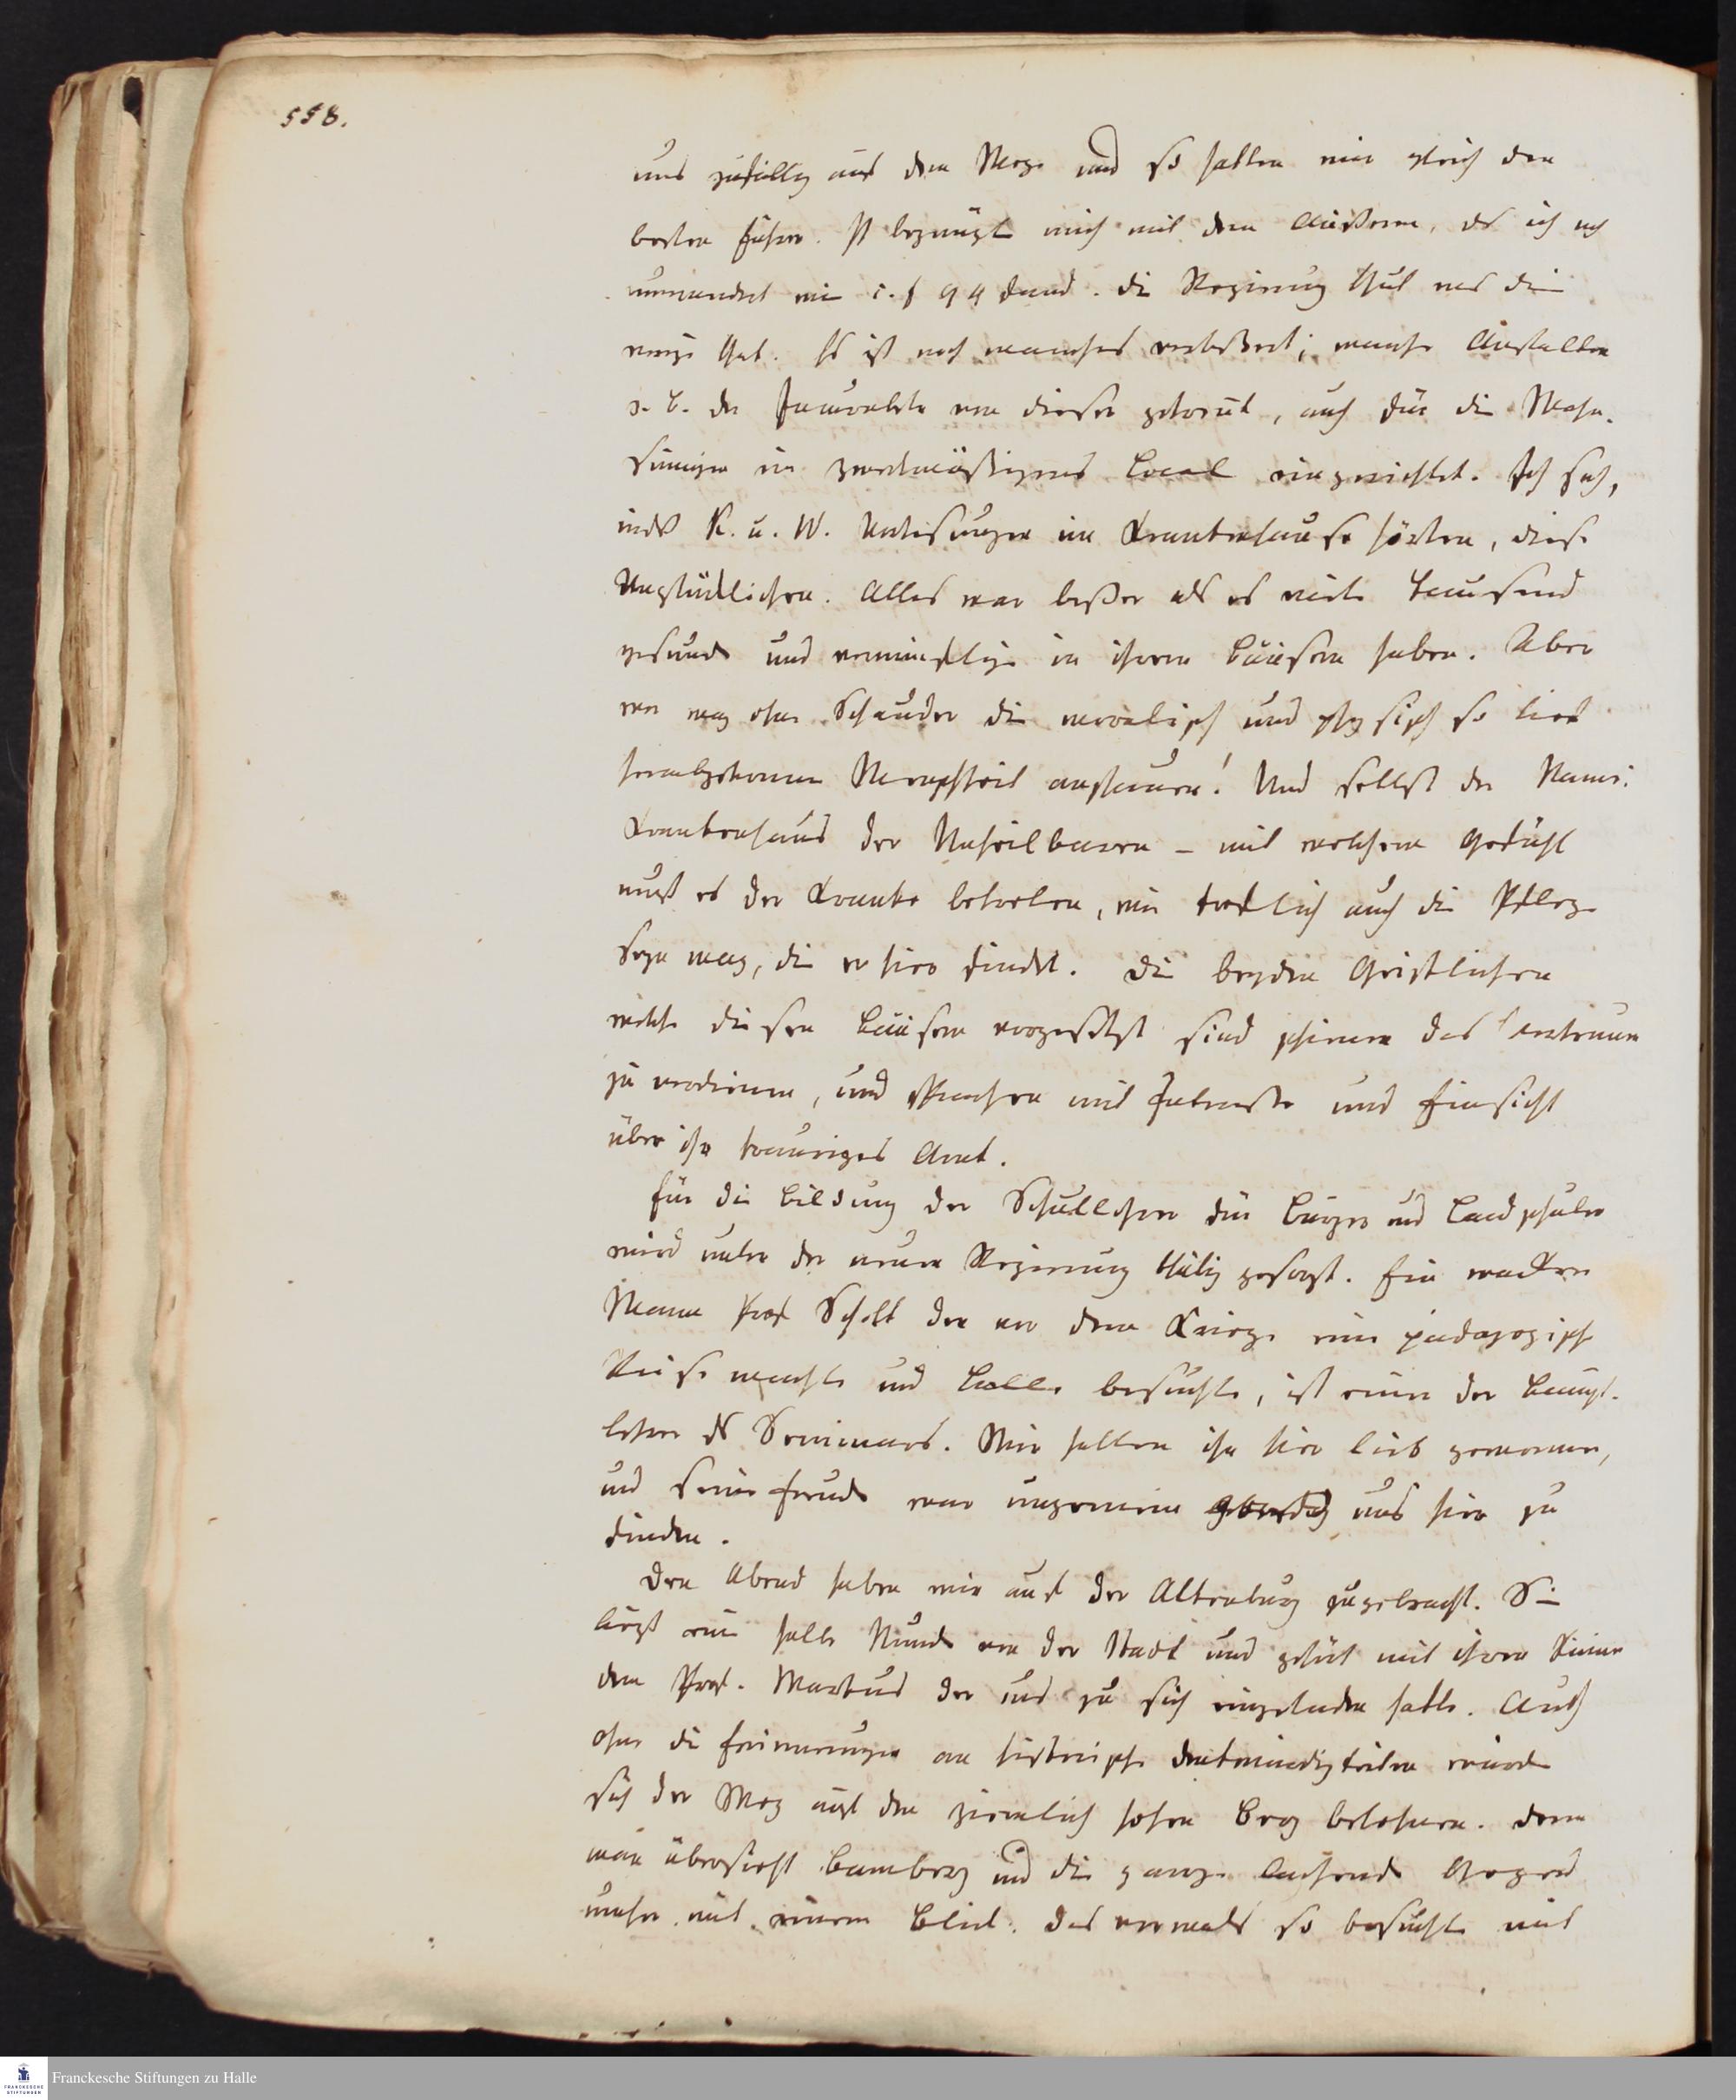 558.
uns zufällig auf dem Wege und so hatten wir gleich den
besten Führer. Ich begnügte mich mit dem Äußern, da ich es
unverändert wie i. J. 94 fand. Die Regierung thut was die
vorige that. Es ist noch manches verbeßert; manche Anstalten
z. B. der Inoculirten von dieser getrennt, auch für die Wahn-
sinnigen ein zweckmäßigeres Local eingerichtet. Ich sah,
indeß K. u. W. Vorlesungen im Krankenhause hörten, diese
Unglücklichen. Alles war beßer als es viele tausend
gesunde und vernünftige in ihren Häusern haben. Aber
wer mag ohne Schauder die moralisch und physisch so tief
herabgekommne Menschheit anschauen! Und selbst der Name:
Krankenhaus der Unheilbaren – mit welchem Gefühl
muß es der Kranke betreten, wie trefflich auch die Pflege
seyn mag, die er hier findet. Die beyden Geistlichen
welche diesen Häusern vorgesetzt sind schienen das Vertrauen
zu verdienen, und sprachen mit Intereße und Einsicht
über ihr trauriges Amt.
Für die Bildung der Schullehrer für Bürger und Landschulen
wird unter der neuen Regierung thätig gesorgt. Ein wackrer
Mann Prof Schott der vor dem Kriege eine pädagogische
Reise machte und Halle besuchte, ist einer der Haupt-
lehrer des Seminars. Wir hatten ihn hier lieb gewonnen,
und seine Freude war ungemein uns hier zu
finden.
Den Abend haben wir auf der Altenburg zugebracht. Sie
liegt eine halbe Stunde von der Stadt und gehört mit ihren Ruinen
dem Prof. Markus der uns zu sich eingeladen hatte. Auch
ohne die Erinnerungen an historische Denkwürdigkeiten würde
sich der Weg auf den ziemlich hohen Berg belohnen. Denn
man übersieht Bamberg und die ganze lachende Gegend
umher mit einem Blick. Das vormals so besuchte und
Franckesche Stiftungen zu Halle